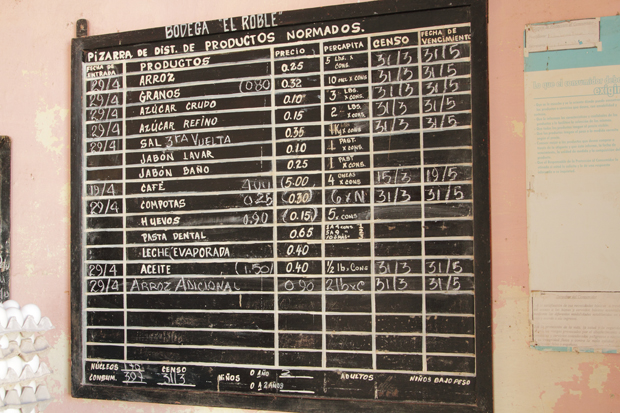 BODEGA "EL ROBLE"
PIZARRA DE DIST. DE PRODUCTOS NORMADOS.
FECHA DE ENTRADA PRODUCTOS PRECIO PERCAPITA CENSO FECHA DE VENCIMIENTO
29/4 ARROZ 0.25 5 LBS. x CONS. 31/3 31/5
29/4 GRANOS (080 0.32 10 x CONS 31/3 31/5
29/4 AZÚCAR CRUDO 0.10 3 LBS. x CONS 31/3 31/5
29/4 AZÚCAR REFINO 0.15 2 LBS. x CONS 31/3 31/5
29/4 SAL 3RA VUELTA 0.35 x CONS 31/3 31/5
JABÓN LAVAR 0.10 1 PAST. x CONS.
JABÓN BAÑO 0.25 1 PAST x CONS.
19/4 CAFÉ (5.00 4 ONZAS x CONS 15/3 19/5
29/4 COMPOTAS 0.25 (0.30) 6 x N 31/3 31/5
HUEVOS 0.90 (0.15) 5 x CONS
PASTA DENTAL 0.65
LECHE EVAPORADA 0.40
29/4 ACEITE (1.50) 0.40 ½ lb. CONS 31/3 31/5
29/4 ARROZ ADICIONAL 0.90 2 lb x C 31/3 31/5
NÚCLEOS CENSO 0 AÑO 2
CONSUM. 307 31/3 NIÑOS 0 A 2 AÑOS ADULTOS NIÑOS BAJO PESO